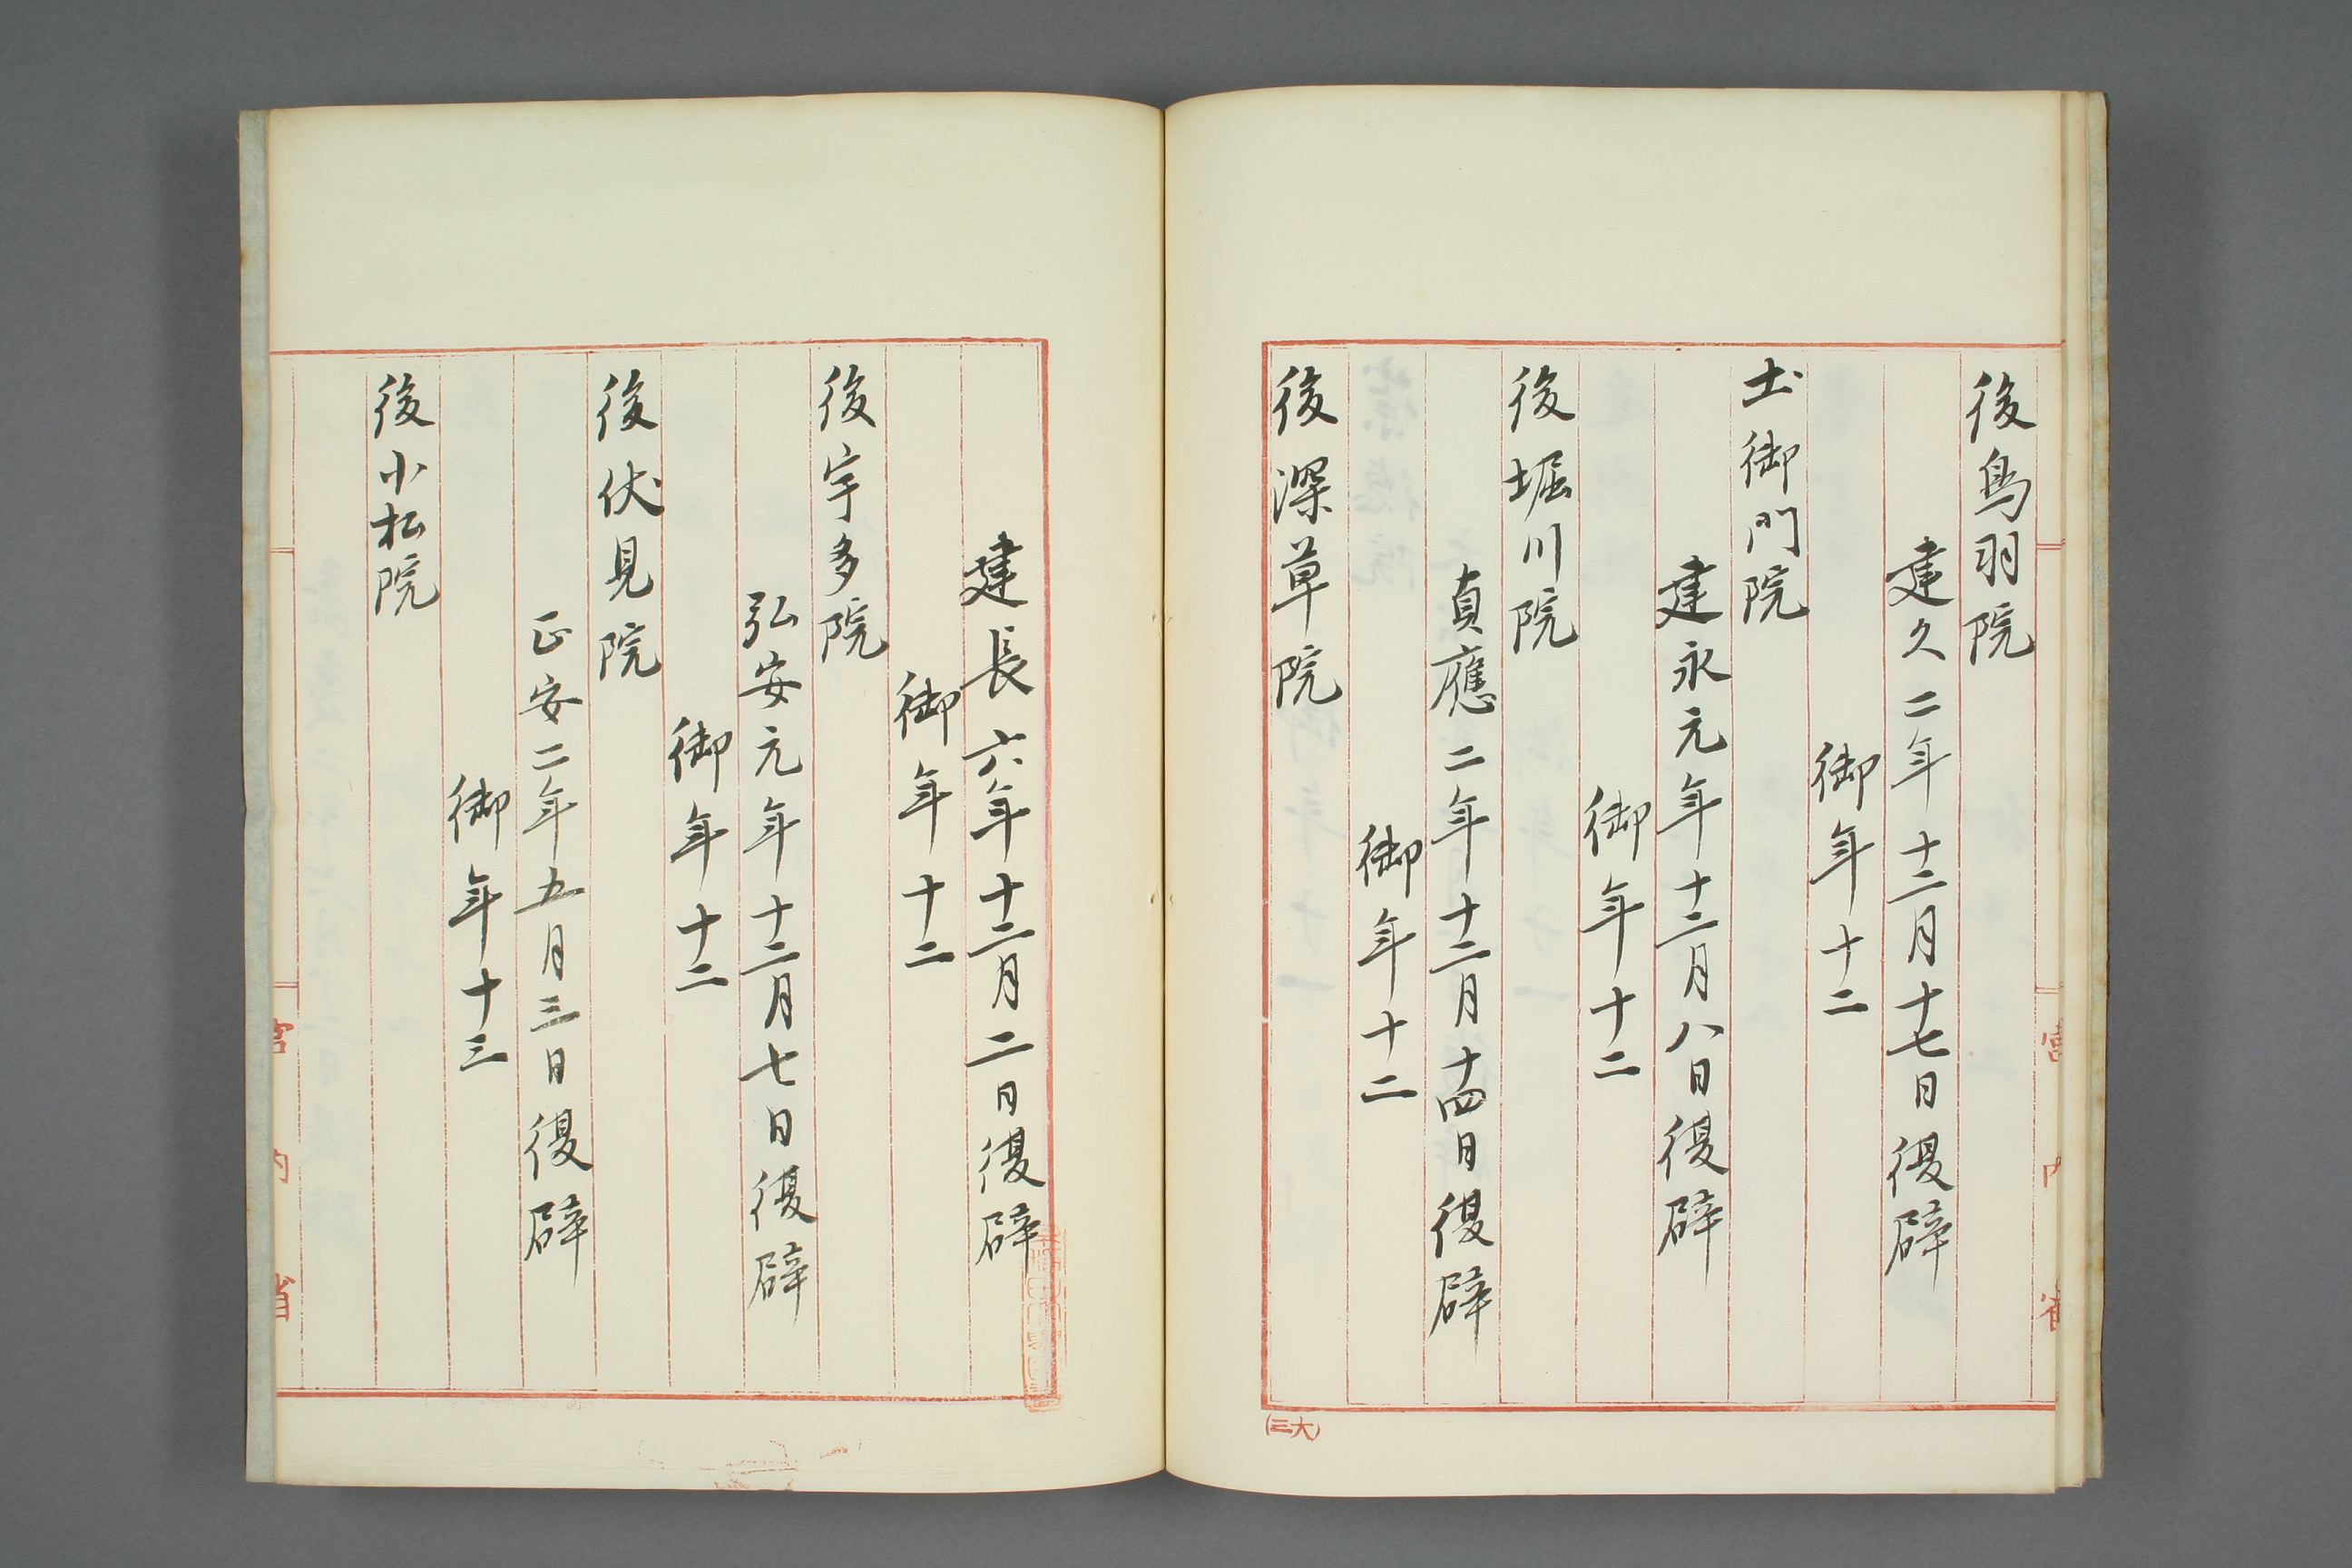 後鳥羽院
建久二年十二月十七日復辟
御年十二
土御門院
建永元年十二月八日復辟
御年十二
後堀川院
貞應二年十二月十四日復辟
御年十二
後深草院
建長六年十二月二日復辟
御年十二
後宇多院
弘安元年十二月七日復辟
御年十二
後伏見院
正安二年五月三日復辟
御年十三
後小松院
宮內省
(大三)